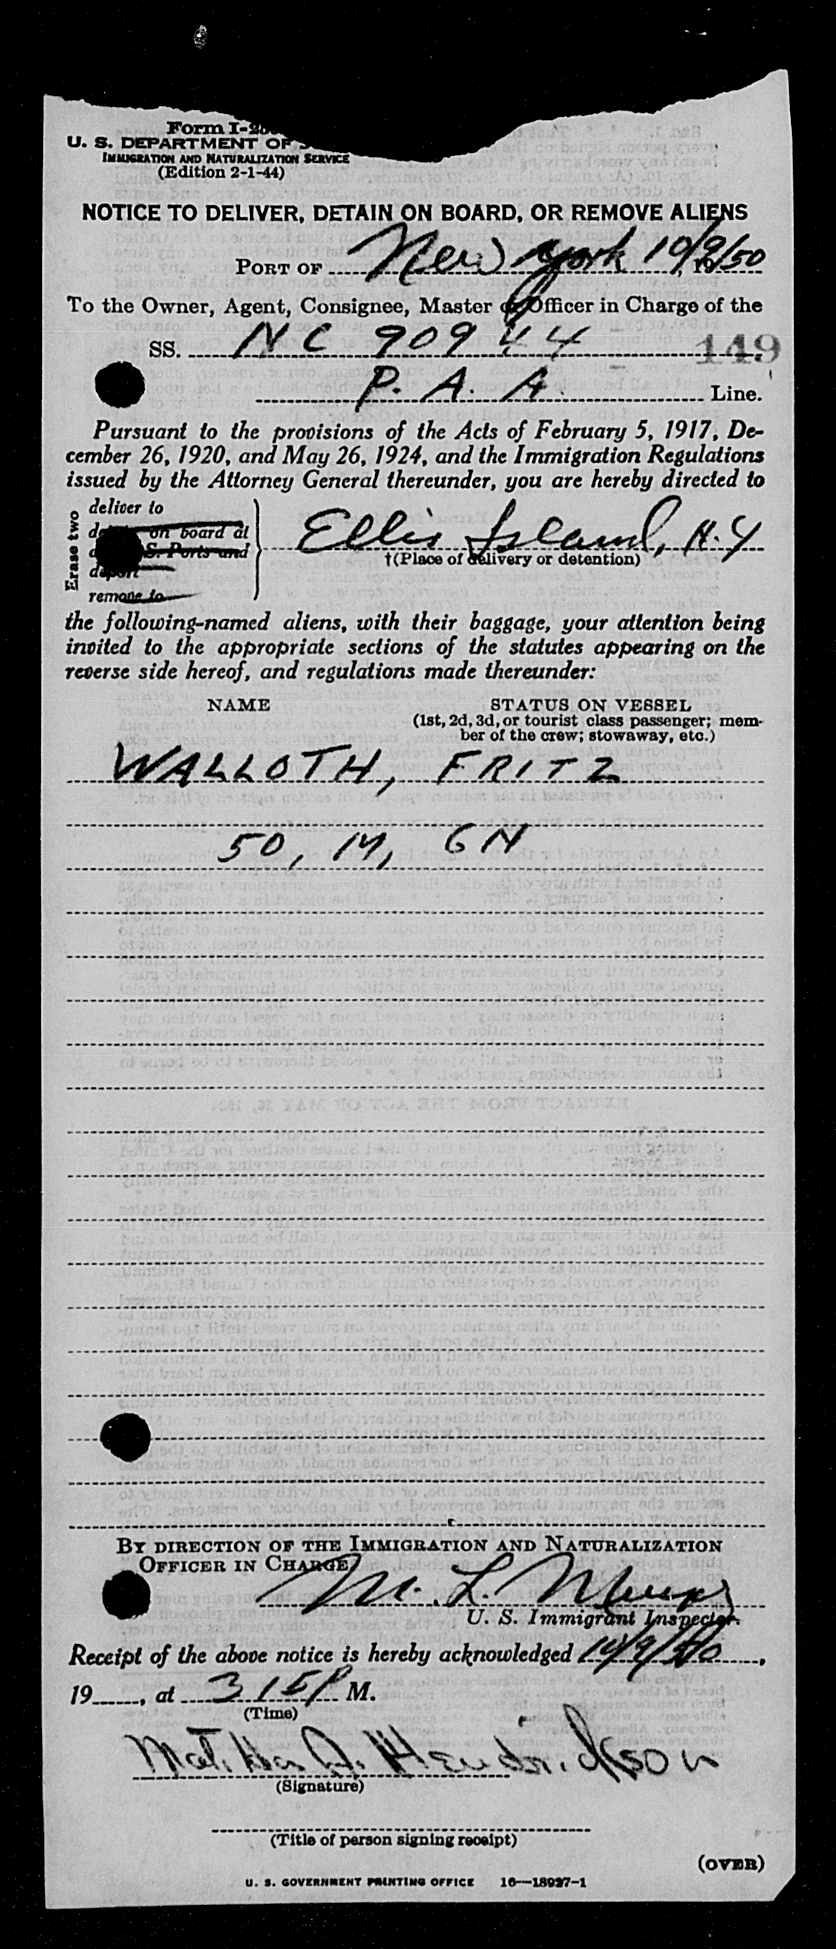 Form I-
U. S. DEPARTMENT OF
IMMIGRATION AND NATURALIZATION SERVICE
(Edition 2-1-44)
NOTICE TO DELIVER, DETAIN ON BOARD, OR REMOVE ALIENS
PORT OF New York 10/9/50
To the Owner, Agent, Consignee, Master or Officer in Charge of the
SS. NC 90944 149
P. A. A. Line.
Pursuant to the provisions of the Acts of February 5, 1917, De-
cember 26, 1920, and May 26, 1924, and the Immigration Regulations
issued by the Attorney General thereunder, you are hereby directed to
Erase two
deliver to
on board at
S. Ports and
deport
remove to
Ellis Island, N.Y
†(Place of delivery or detention)
the following-named aliens, with their baggage, your attention being
invited to the appropriate sections of the statutes appearing on the
reverse side hereof, and regulations made thereunder:
NAME STATUS ON VESSEL
(1st, 2d, 3d, or tourist class passenger; mem-
ber of the crew; stowaway, etc.)
WALLOTH, FRITZ
50, M, GN
BY DIRECTION OF THE IMMIGRATION AND NATURALIZATION
OFFICER IN CHARGE
M. L.
U. S. Immigrant Inspector.
Receipt of the above notice is hereby acknowledged 10/9/50,
19____, at 315P M.
(Time)
Hendrickson
(Signature)
(Title of person signing receipt)
(OVER)
U. S. GOVERNMENT PRINTING OFFICE 16—18937-1